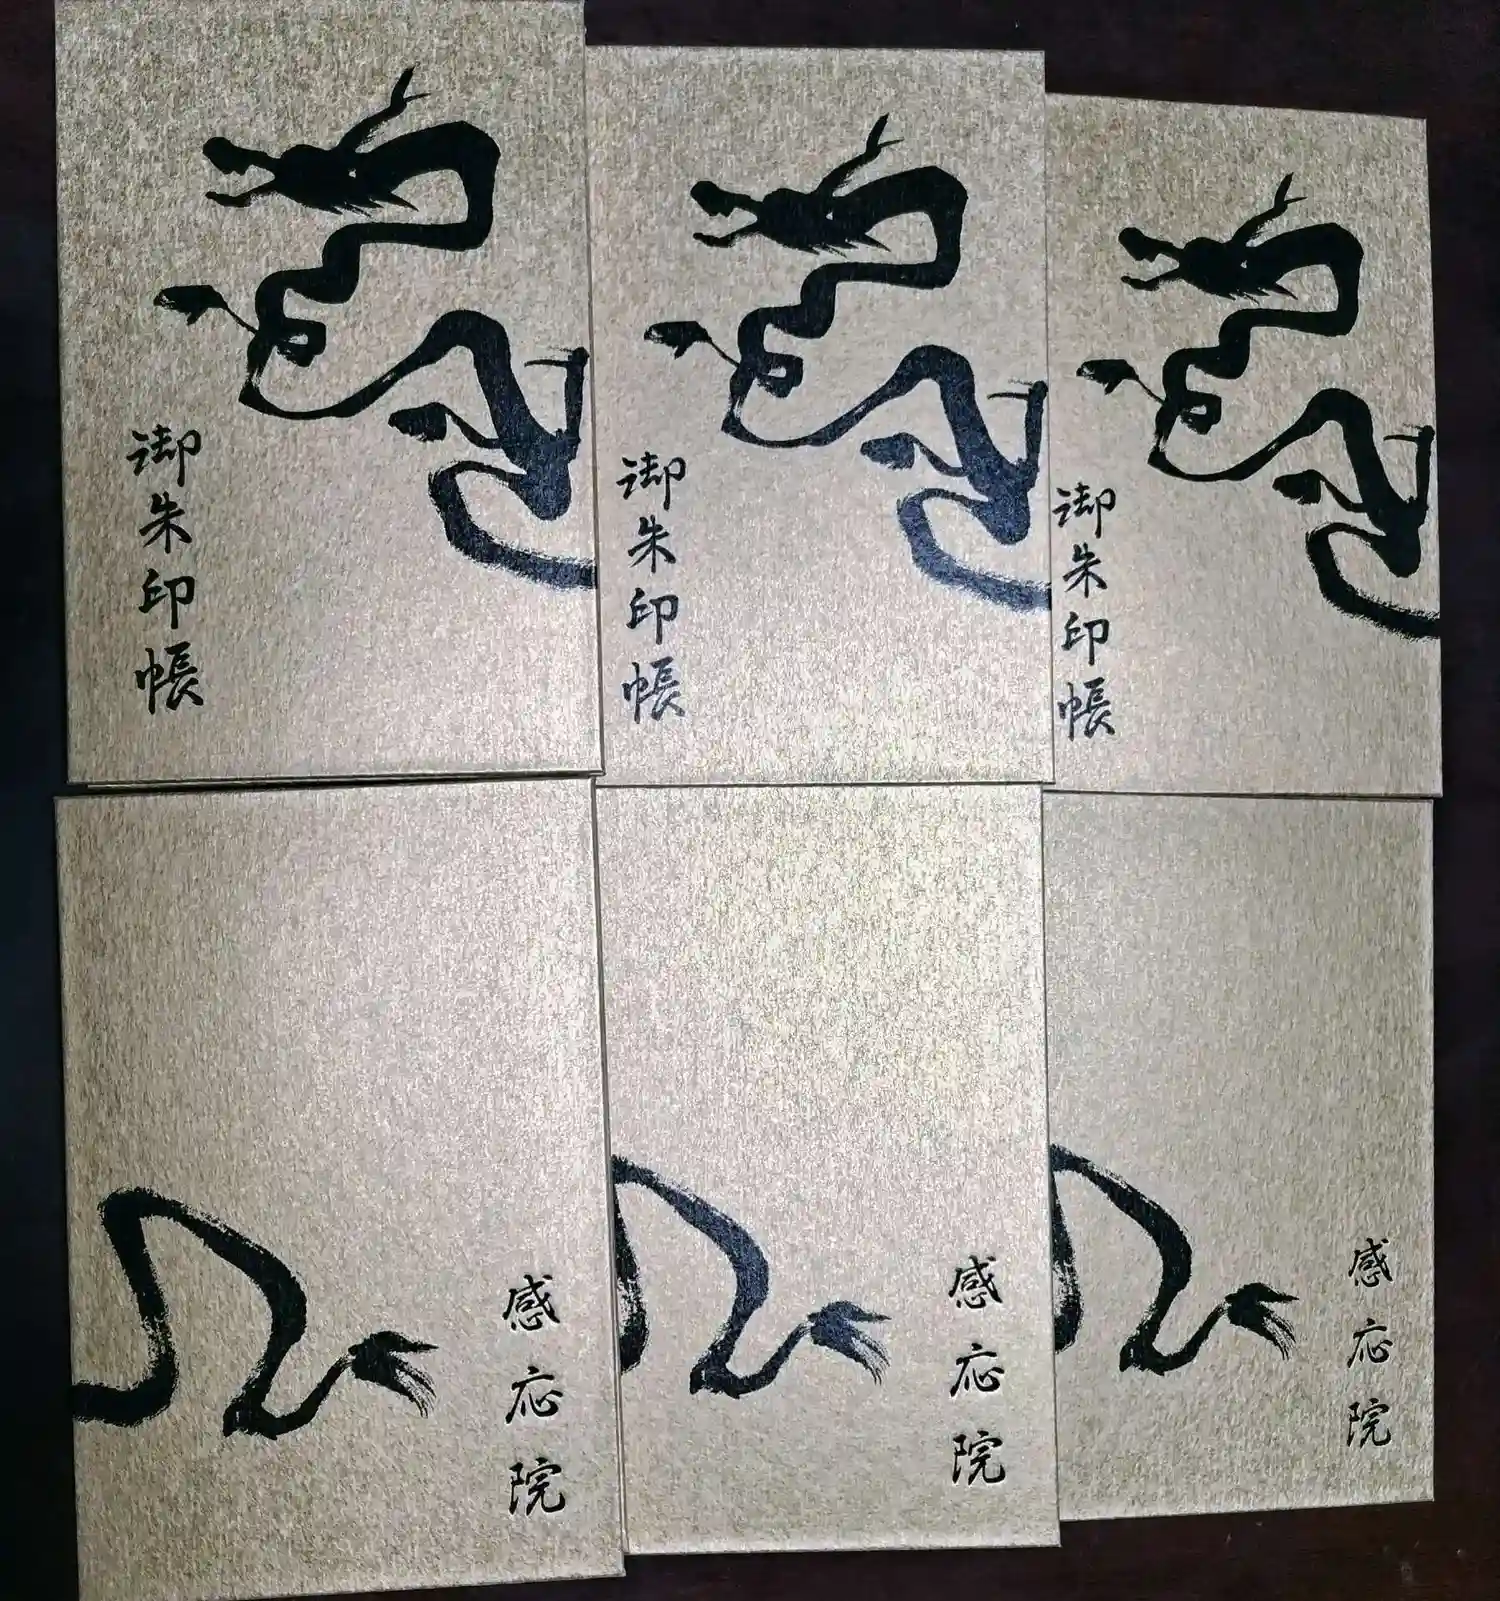 御朱印帳
御朱印帳
御朱印帳
感応院
感応院
感応院